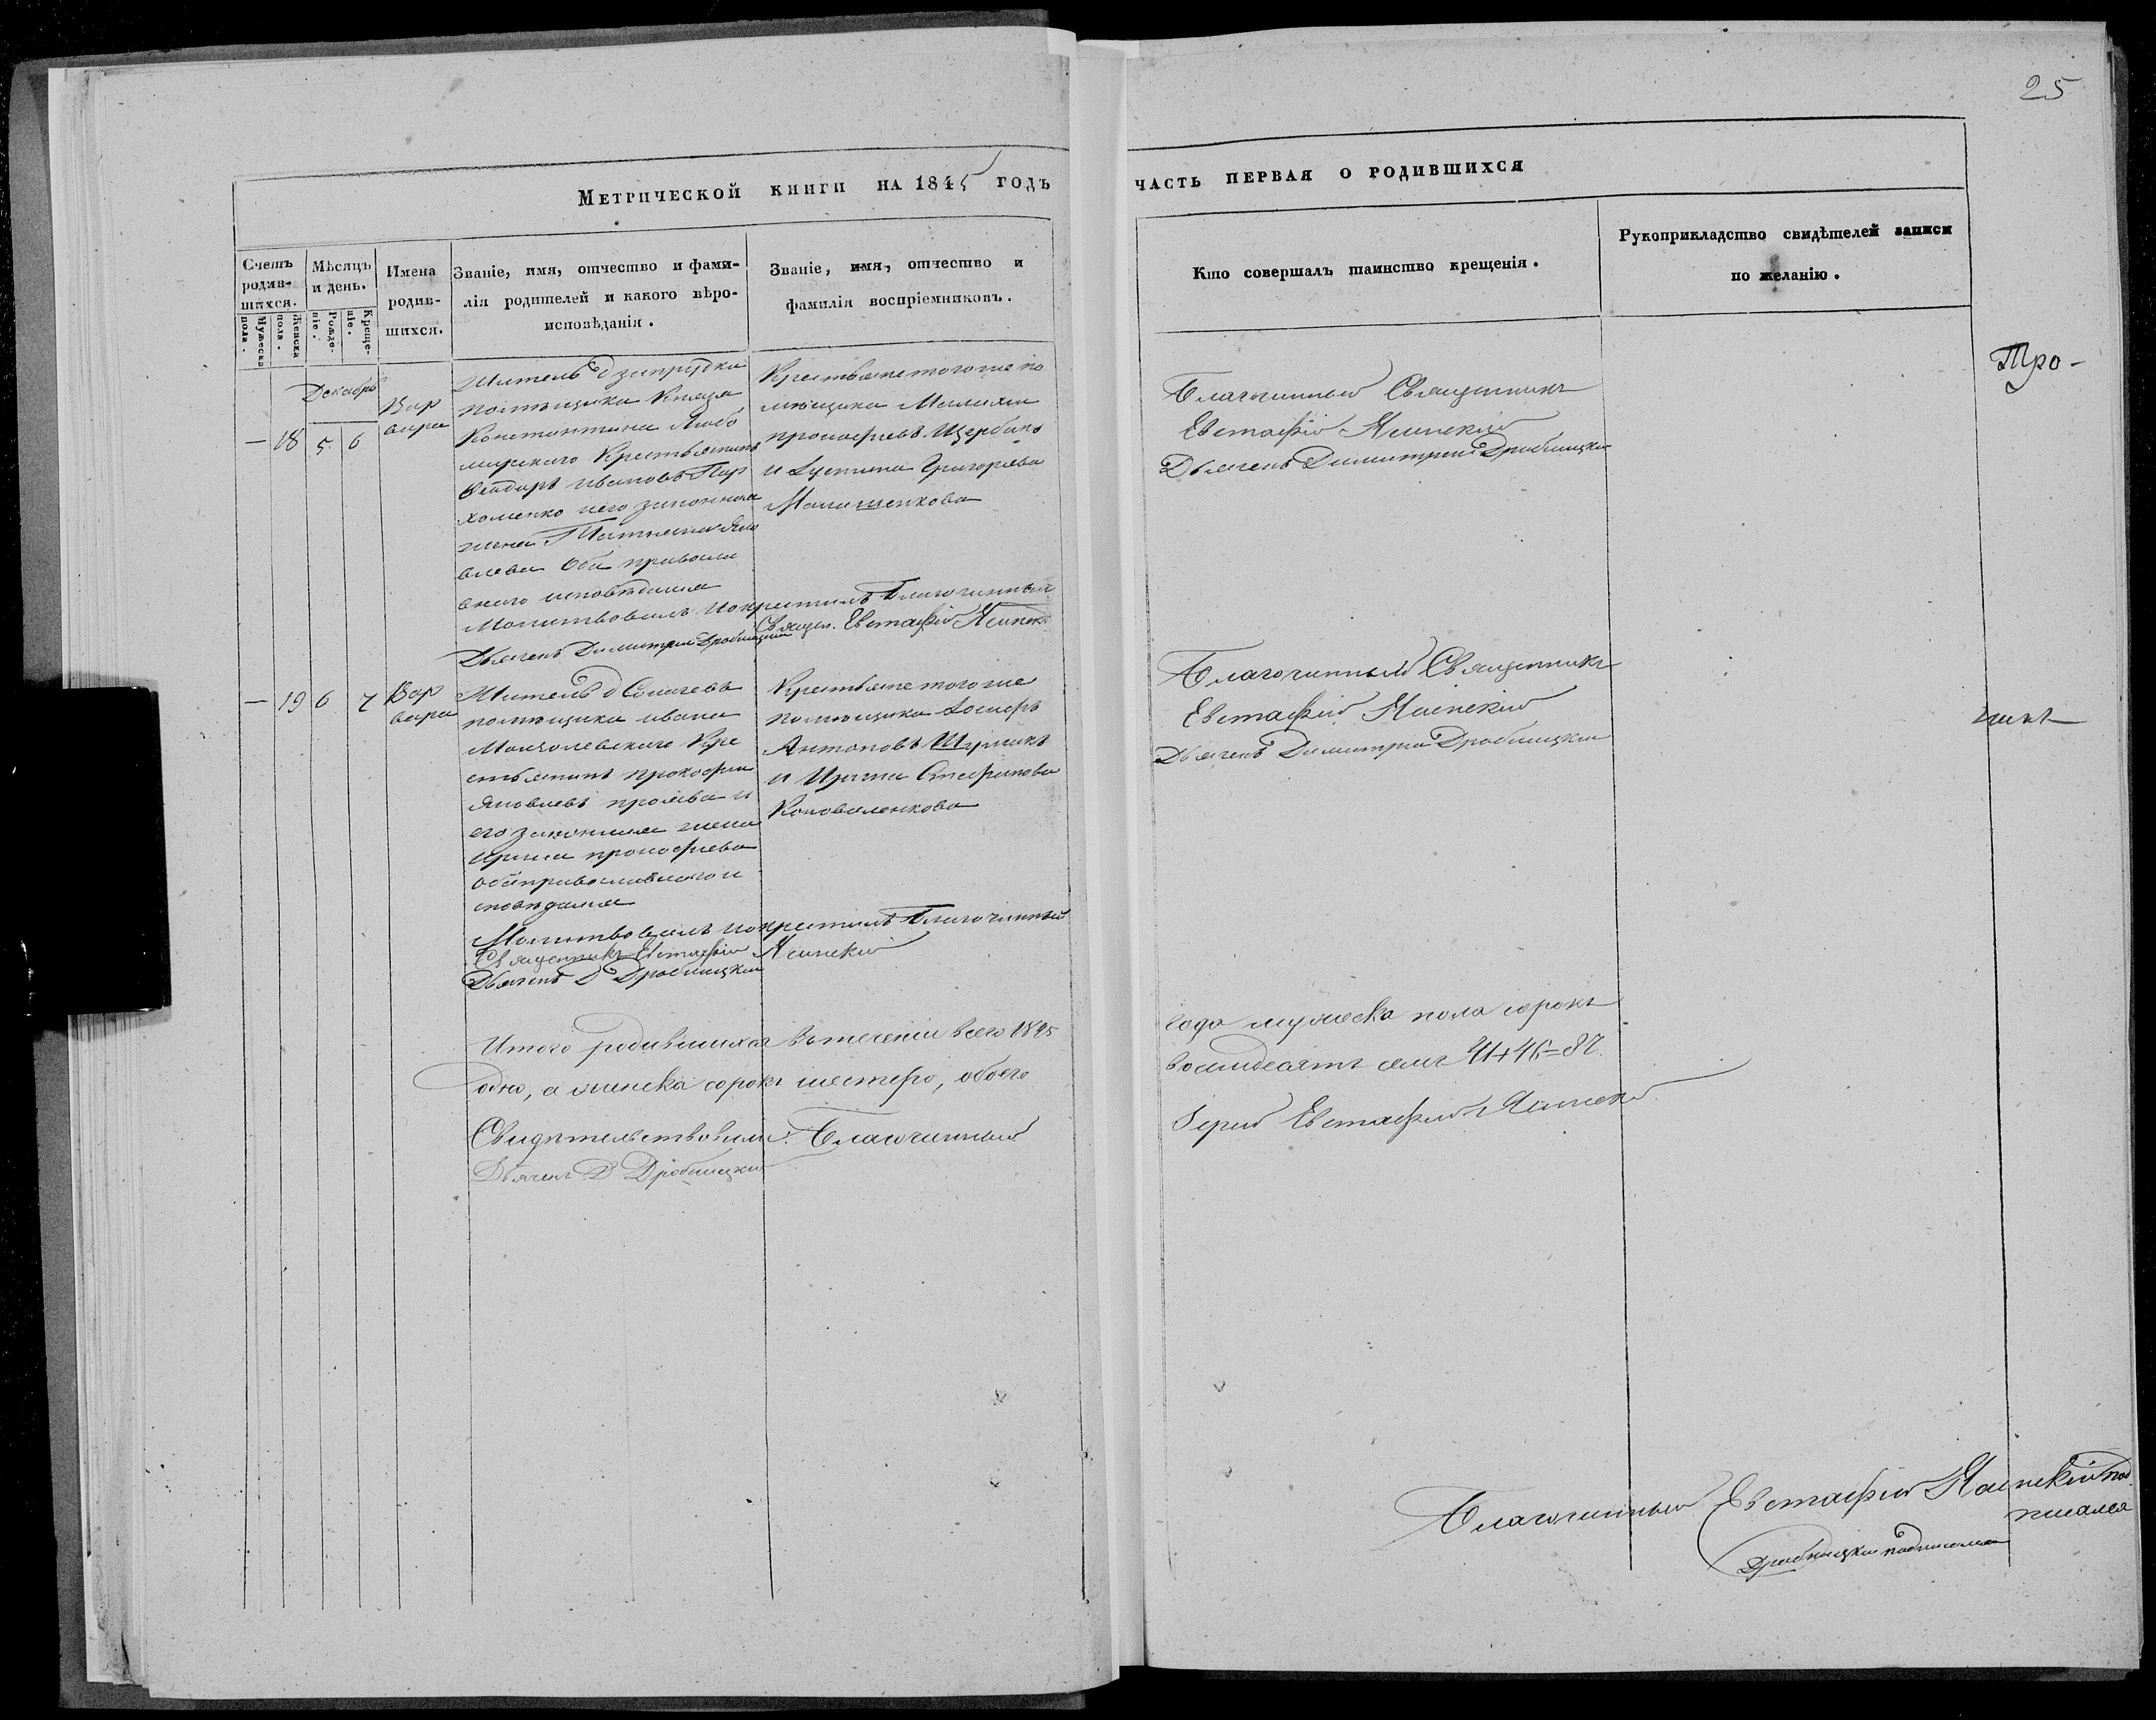 25
Метрической книги на 1845 годъ
часть первая о родившихся
Счетъ родив-шихся.
Мужеска пола.
Женска пола.
Мѣсяцъ и день.
Рожде-ніе.
Креще-ніе.
Имена родив-шихся.
Званіе, имя, отчество и фами-
лія родителей и какого вѣро-
исповѣданія.
Званіе, имя, отчество и
фамилія воспріемниковъ.
Кто совершалъ таинство крещенія.
Рукоприкладство свидѣтелей записи
по желанію.
Декабрь
— 18 5 6
Вар
вара
Житель д запрудки
помѣщика Князя
Константина Любо
мирскаго Крестьянинъ
Феодоръ ивановъ Пар
хоменко иего законная
жена Татьяна Яко
влева Оба правосла
внаго исповѣданія
Молитвовалъ иокрестилъ Благочинный
Священ. Евстафій Ясинск
Дьячекъ Димитрій Дробницкій
Крестьяне того же по
мѣщика
прокофьевъ Щербина
и Григорьева
Благочинный Священникъ
Евстафій Ясинскій
Дьячекъ Димитрий Дробницкій
Тро-
— 19 6 7
Вар
вара
Житель д
помѣщика ивана
Кре
стьянинъ прокофий
Яковлевъ и
его законная жена
ирина прокофьева
оба православнаго и
сповѣданія
Молитвовалъ иокрестилъ Благочинный
Священникъ Евстафій Ясинскій
Дьячекъ Д Дробницкій
Крестьяне того же
помѣщика Іосифъ
Антоновъ
и Ирина
Коноваленкова
Благочинный Священникъ
Евстафій Ясинскій
Дьячекъ Димитрий Дробницкій
Итого родившихся втеченіи всего 1845
года мужеска пола сорокъ
одно, а женска сорокъ шестеро, обоего
восмдесятъ семъ 41+46=87.
Свидѣтельствовали: Благочинный
Іерей Евстафій Ясинскій
Дьячекъ Д Дробницкій
Благочинный Евстафій Ясинскій под
писался
Дробницкій подписался